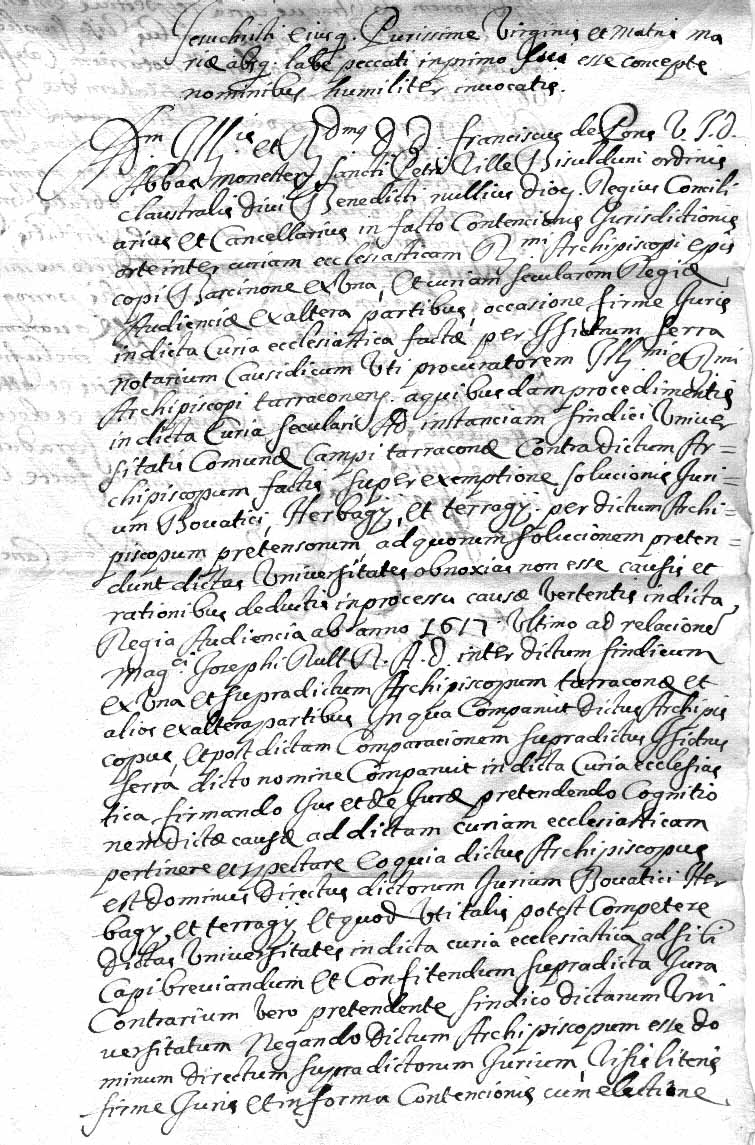 Jesuchristi Eiusq. Purissime Virginis et Matris ma
riæ absq. labe peccati in primo sui esse conceptæ
nominibus humiliter invocatis.
Adm Ill.is et R.dmus D. D. Franciscus de Pons V. I. D.
Abbas Monestery Sancti Petri Ville Bisulduni ordinis
claustralis divi Benedicti nullius dioc. Regius Concili
arius et Cancellarius in facto Contencionis Jurisdictionis
orte inter curiam ecclesiasticam R.mi Archipiscopi epis
copi Barcinone ex Una, et curiam secularem Regiæ
Audienciæ ex altera partibus, occasione firme Juris
in dicta Curia ecclesiastica factæ per Isidrum Serra
notarium Causidicum Uti procuratorem Ill.mi et R.mi
Archipiscopi tarraconens. a quibusdam procedimentis
in dicta Curia seculari Ad instanciam Sindici Univer
sitatis Comunæ Campi tarraconæ Contra Dictum Ar=
chipiscopum factis super exemptione solucionis Juri=
um Bovatici, Herbagij, et terragij. per dictum Archi=
piscopum pretensorum, ad quorum solucionem preten=
dunt dictas Universitates obnoxias non esse causis et
rationibus deductis in processu causæ vertentis in dicta
Regia Audiencia ab anno 1617. Ultimo ad relacione
Mag.ci Josephi Rull R. A. D. inter dictum sindicum
ex Una et supradictum Archipiscopum tarraconæ et
alios ex altera partibus In qua Comparuit dictus Archipis
copus, et post dictam Comparacionem supradictus Isidrus
Serra dicto nomine Comparuit in dicta Curia ecclesias
tica firmando Jus et de Juræ pretendendo Cognitio
nem dictæ causæ ad dictam curiam ecclesiasticam
pertinere et spectare Eo quia dictus Archipiscopus
est dominus directus dictorum Jurium Bovatici Her
bagy, et terragij Et quod Uti talis potest Competere
dictas Universitates in dicta curia ecclesiastica ad sibi
Capibreviandum et Confitendum supradicta Jura
Contrarium vero pretendente sindico dictarum Uni
versitatum Negando Dictum Archipiscopum esse do
minum directum supradictorum Jurium, Visis literis
firme Juris et in forma Contencionis cum electione